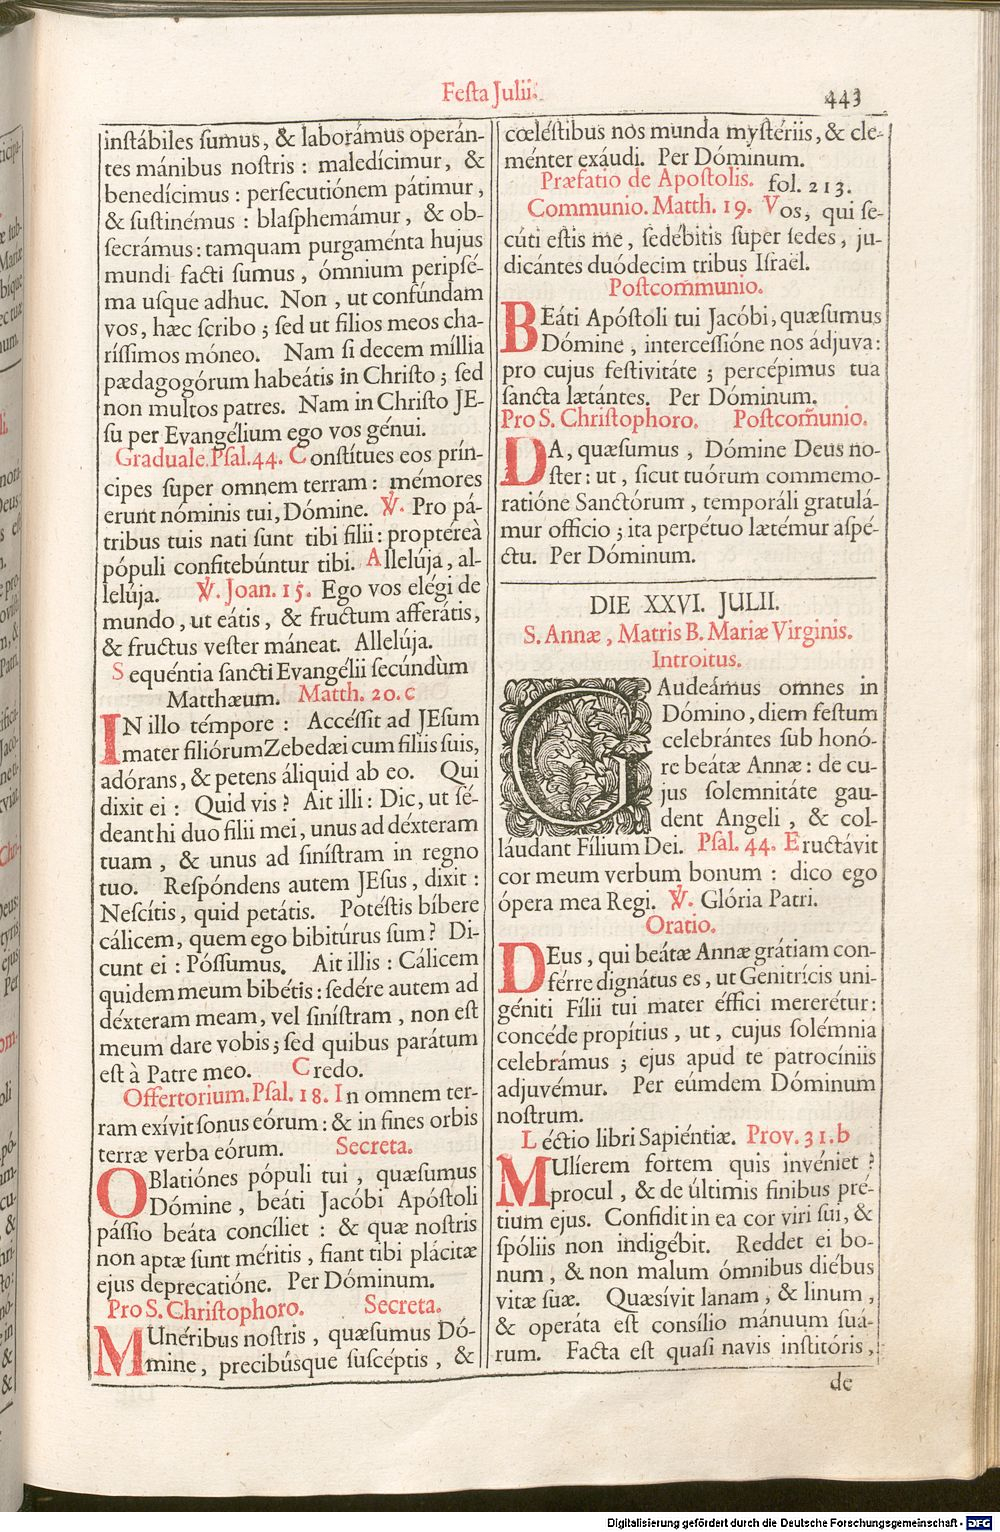 Feſta Julii.
443
inſtábiles ſumus, & laborámus operán-
tes mánibus noſtris : maledícimur, &
benedícimus : perſecutiónem pátimur,
& ſuſtinémus : blaſphemámur, & ob-
ſecrámus : tamquam purgaménta hujus
mundi facti ſumus, ómnium peripſé-
ma uſque adhuc. Non, ut confúndam
vos, hæc ſcribo ; ſed ut filios meos cha-
ríſſimos móneo. Nam ſi decem míllia
pædagogórum habeátis in Chriſto ; ſed
non multos patres. Nam in Chriſto JE-
ſu per Evangélium ego vos génui.
Graduale. Pſal. 44. Conſtítues eos prín-
cipes ſuper omnem terram : mémores
erunt nóminis tui, Dómine. ℣. Pro pá-
tribus tuis nati ſunt tibi filii : proptéreà
pópuli confitebúntur tibi. Allelúja, al-
lelúja. ℣. Joan. 15. Ego vos elégi de
mundo, ut eátis, & fructum afferátis,
& fructus veſter máneat. Allelúja.
Sequéntia ſancti Evangélii ſecúndùm
Matthæum. Matth. 20. c
IN illo témpore : Accéſſit ad JEſum
mater filiórum Zebedæi cum filiis ſuis,
adórans, & petens áliquid ab eo. Qui
dixit ei : Quid vis ? Ait illi : Dic, ut ſé-
deant hi duo filii mei, unus ad déxteram
tuam, & unus ad ſiníſtram in regno
tuo. Reſpóndens autem JEſus, dixit :
Neſcítis, quid petátis. Potéſtis bíbere
cálicem, quem ego bibitúrus ſum ? Di-
cunt ei : Póſſumus. Ait illis : Cálicem
quidem meum bibétis : ſedére autem ad
déxteram meam, vel ſiníſtram, non eſt
meum dare vobis ; ſed quibus parátum
eſt à Patre meo. Credo.
Offertorium. Pſal. 18. In omnem ter-
ram exívit ſonus eórum : & in fines orbis
terræ verba eórum. Secreta.
OBlatiónes pópuli tui, quæſumus
Dómine, beáti Jacóbi Apóſtoli
páſſio beáta concíliet : & quæ noſtris
non aptæ ſunt méritis, fiant tibi plácitæ
ejus deprecatióne. Per Dóminum.
Pro S. Chriſtophoro. Secreta.
MUnéribus noſtris, quæſumus Dó-
mine, precibúsque ſuſcéptis, &
cœléſtibus nos munda myſtériis, & cle-
ménter exáudi. Per Dóminum.
Præfatio de Apoſtolis. fol. 213.
Communio. Matth. 19. Vos, qui ſe-
cúti eſtis me, ſedébitis ſuper ſedes, ju-
dicántes duódecim tribus Iſrael.
Poſtcom̃unio.
BEáti Apóſtoli tui Jacóbi, quæſumus
Dómine, interceſſióne nos ádjuva:
pro cujus feſtivitáte ; percépimus tua
ſancta lætántes. Per Dóminum.
Pro S. Chriſtophoro. Poſtcom̃unio.
DA, quæſumus, Dómine Deus no-
ſter : ut, ſicut tuórum commemo-
ratióne Sanctórum, temporáli gratulá-
mur officio ; ita perpétuo lætémur aſpé-
ctu. Per Dóminum.
DIE XXVI. JULII.
S. Annæ, Matris B. Mariæ Virginis.
Introitus.
GAudeámus omnes in
Dómino, diem feſtum
celebrántes ſub honó-
re beátæ Annæ : de cu-
jus ſolemnitáte gau-
dent Angeli, & col-
láudant Fílium Dei. Pſal. 44. Eructávit
cor meum verbum bonum : dico ego
ópera mea Regi. ℣. Glória Patri.
Oratio.
DEus, qui beátæ Annæ grátiam con-
férre dignátus es, ut Genitrícis uni-
géniti Fílii tui mater éffici mererétur:
concéde propítius, ut, cujus ſolémnia
celebrámus ; ejus apud te patrocíniis
adjuvémur. Per eúmdem Dóminum
noſtrum.
Léctio libri Sapiéntiæ. Prov. 31. b
MUlíerem fortem quis invéniet ?
procul, & de últimis finibus pré-
tium ejus. Confidit in ea cor viri ſui, &
ſpóliis non indigébit. Reddet ei bo-
num, & non malum ómnibus diébus
vitæ ſuæ. Quæſívit lanam, & linum,
& operáta eſt conſílio mánuum ſuá-
rum. Facta eſt quaſi navis inſtitóris,
de
Digitalisierung gefördert durch die Deutsche Forschungsgemeinschaft - DFG